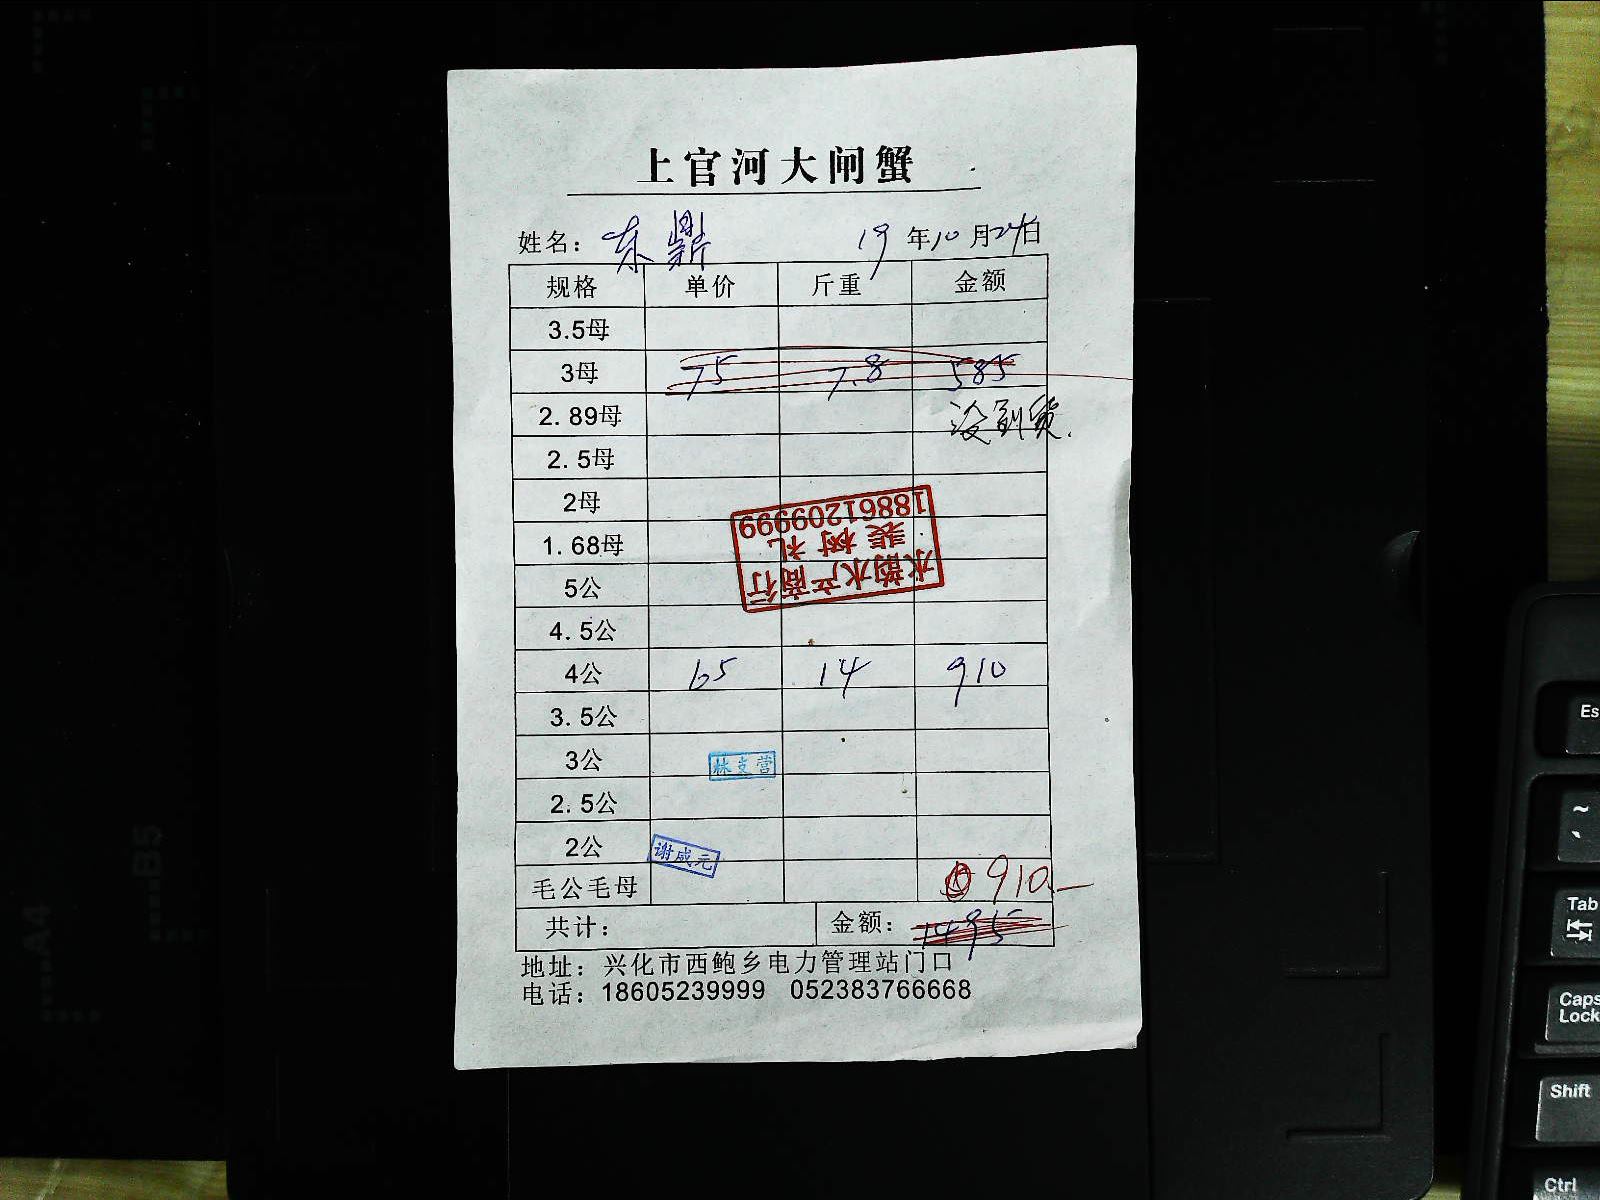 上官河大闸蟹
姓名：东鼎 19年10月24日
规格 单价 斤重 金额
3.5母
3母 75 7.8 585
2.89母 没到货.
2.5母
2母
1.68母
18861209999
裴树礼
水韵水产商行
5公
4.5公
4公 65 14 910
3.5公
3公 林支营
2.5公
2公 谢咸元
毛公毛母 910—
共计： 金额：1495
地址：兴化市西鲍乡电力管理站门口
电话：18605239999 052383766668
A4
B5
Es
~
Tab
Caps
Lock
Shift
Ctrl